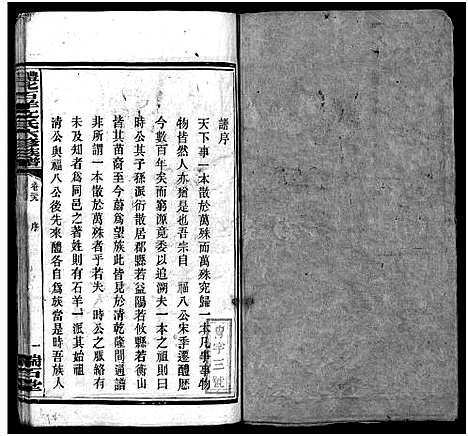 譜序
天下事一本散於萬殊而萬殊究歸一本凡事事物
物皆然人亦猶是也吾宗自 福八公宋季遷醴歷
今數百年矣窮源竟委以追溯夫 時公之本則曰
時公其子孫派衍散居郡縣若益陽若攸縣若衡山
皆其苗裔至今蔚為望族此皆見於清乾隆間通譜
非所謂一本散於萬殊者乎若夫 時公之脈絡有
未及知者為同邑之著姓則有石羊一派其始祖
清公與福八公後先來醴各自為族當是時吾族人
卷
序
一
瑞石堂
字三號